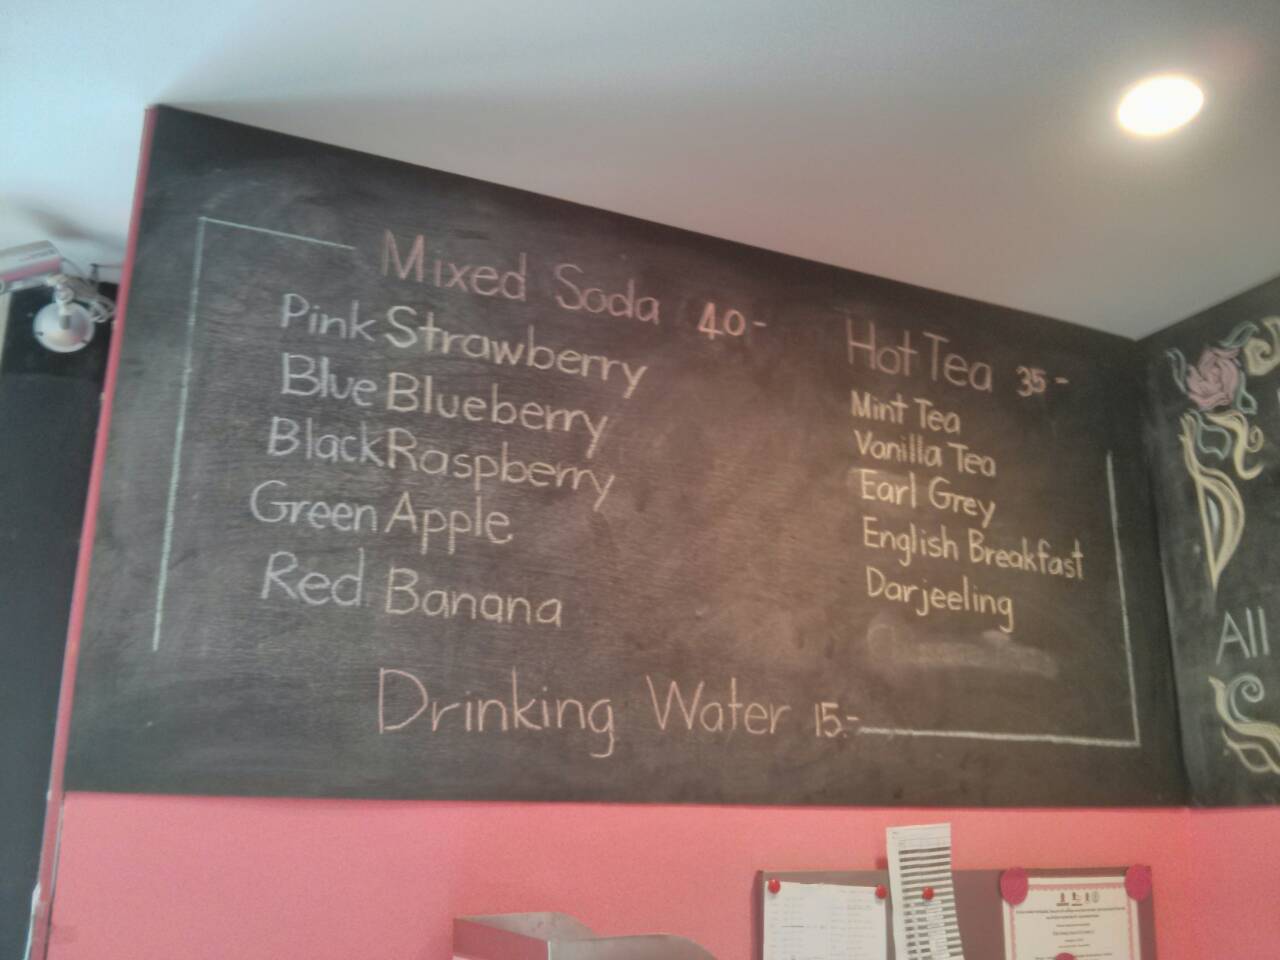 Mixed Soda 40-
Pink Strawberry
Blue Blueberry
Black Raspberry
Green Apple
Red Banana
Hot Tea 35-
Mint Tea
Vanilla Tea
Earl Grey
English Breakfast
Darjeeling
Drinking Water 15.-
All